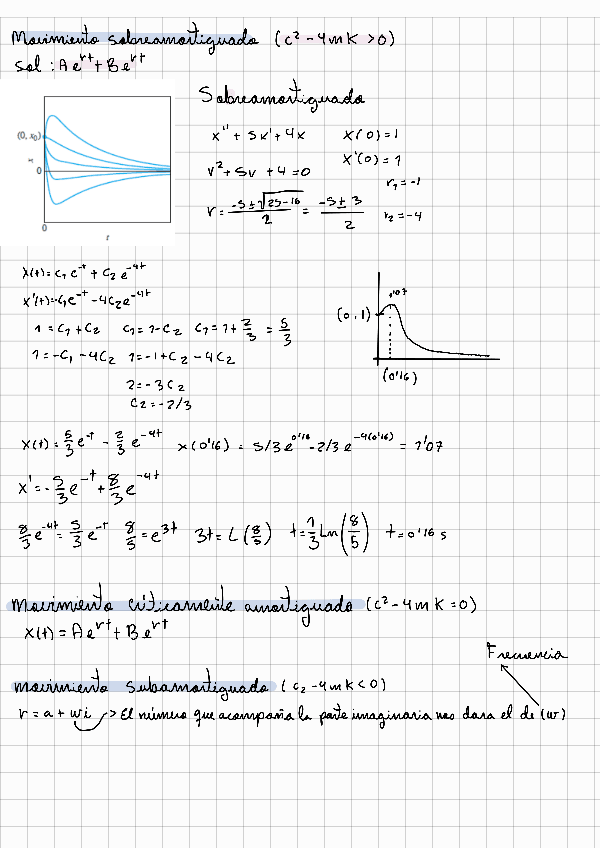 Movimiento sobreamortiguado (c² - 4mK > 0)
Sol : A e^rt + B e^rt
Sobreamortiguado
(0, x₀)
x
0
0
t
x'' + 5x' + 4x    x(0) = 1
x'(0) = 1
r² + 5r + 4 = 0
r₁ = -1
r = (-5 ± √(25 - 16))/2 = (-5 ± 3)/2    r₂ = -4
x(t) = c₁ e^-t + c₂ e^-4t
x'(t) = -c₁e^-t - 4c₂e^-4t
1 = c₁ + c₂    c₁ = 1 - c₂    c₁ = 1 + 2/3 = 5/3
1 = -c₁ - 4c₂    1 = -1 + c₂ - 4c₂
2 = -3c₂
c₂ = -2/3
1'07
(0,1)
(0'16)
x(t) = 5/3 e^-t - 2/3 e^-4t    x(0'16) = 5/3 e^0'16 - 2/3 e^-4(0'16) = 1'07
x' = -5/3 e^-t + 8/3 e^-4t
8/3 e^-4t = 5/3 e^-t    8/3 = e^3t    3t = L(8/5)    t = 1/3 Ln(8/5)    t = 0'16 s
Movimiento críticamente amortiguado (c² - 4mK = 0)
x(t) = A e^rt + B e^rt
Frecuencia
movimiento subamortiguado (c₂ - 4mK < 0)
r = a + wi -> El número que acompaña la parte imaginaria nos dara el de (w)